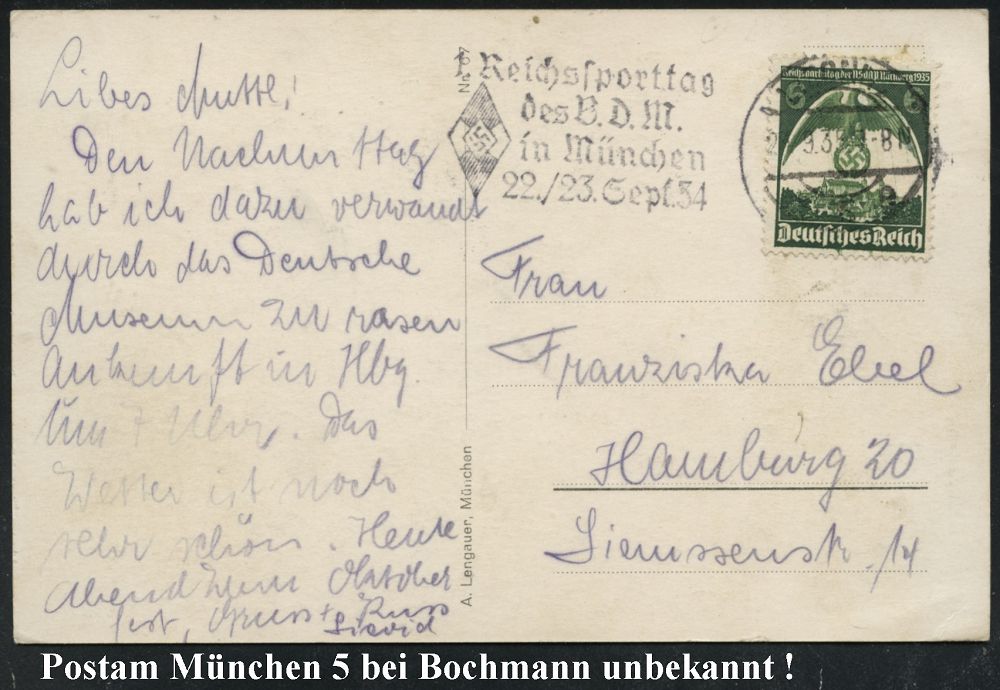 Libes Muttl!
Den Nachmittag
hab ich dazu verwandt
durch das Deutsche
Museum zu rasen
Ankunft in Hbg.
Um 7 Uhr. Das
Wetter ist noch
sehr schön. Heute
Abend zum Oktober
fest, Gruss + Kuss
A. Lengauer, München
Nr. 67
1. Reichssporttag
des B.D.M.
in München
22./23. Sept. 34
Reichsparteitag der NSDAP Nürnberg 1935
6 6
Deutsches Reich
Frau
Franziska Ebel
Hamburg 20
Siemssenstr. 14
Postam München 5 bei Bochmann unbekannt !